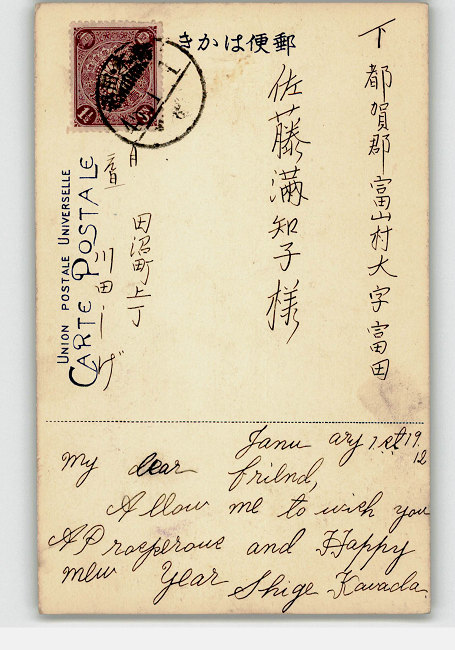 郵便はかき
下都賀郡富山村大字富田
佐藤満知子様
田沼町上丁
川田しげ
UNION POSTALE UNIVERSELLE
CARTE POSTALE
1½ Sn
January 1st 1912
My dear friend,
Allow me to wish you
A Prosperous and Happy
new Year
Shige Kawada